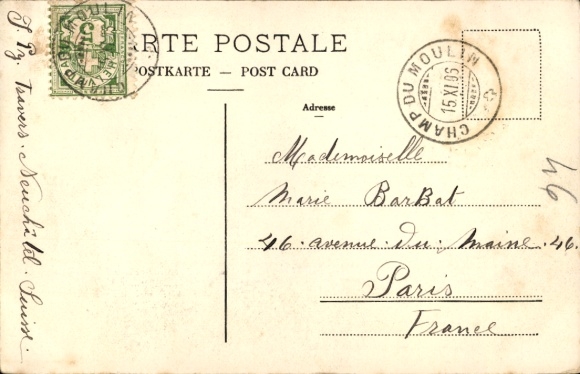 CARTE POSTALE
POSTKARTE — POST CARD
Adresse
CHAMP DU MOULIN
15 XI 06
5
Mademoiselle
Marie BarBat
46. avenue. du. Maine. 46.
Paris
France
46
Travers. Neuchâtel. Suisse.